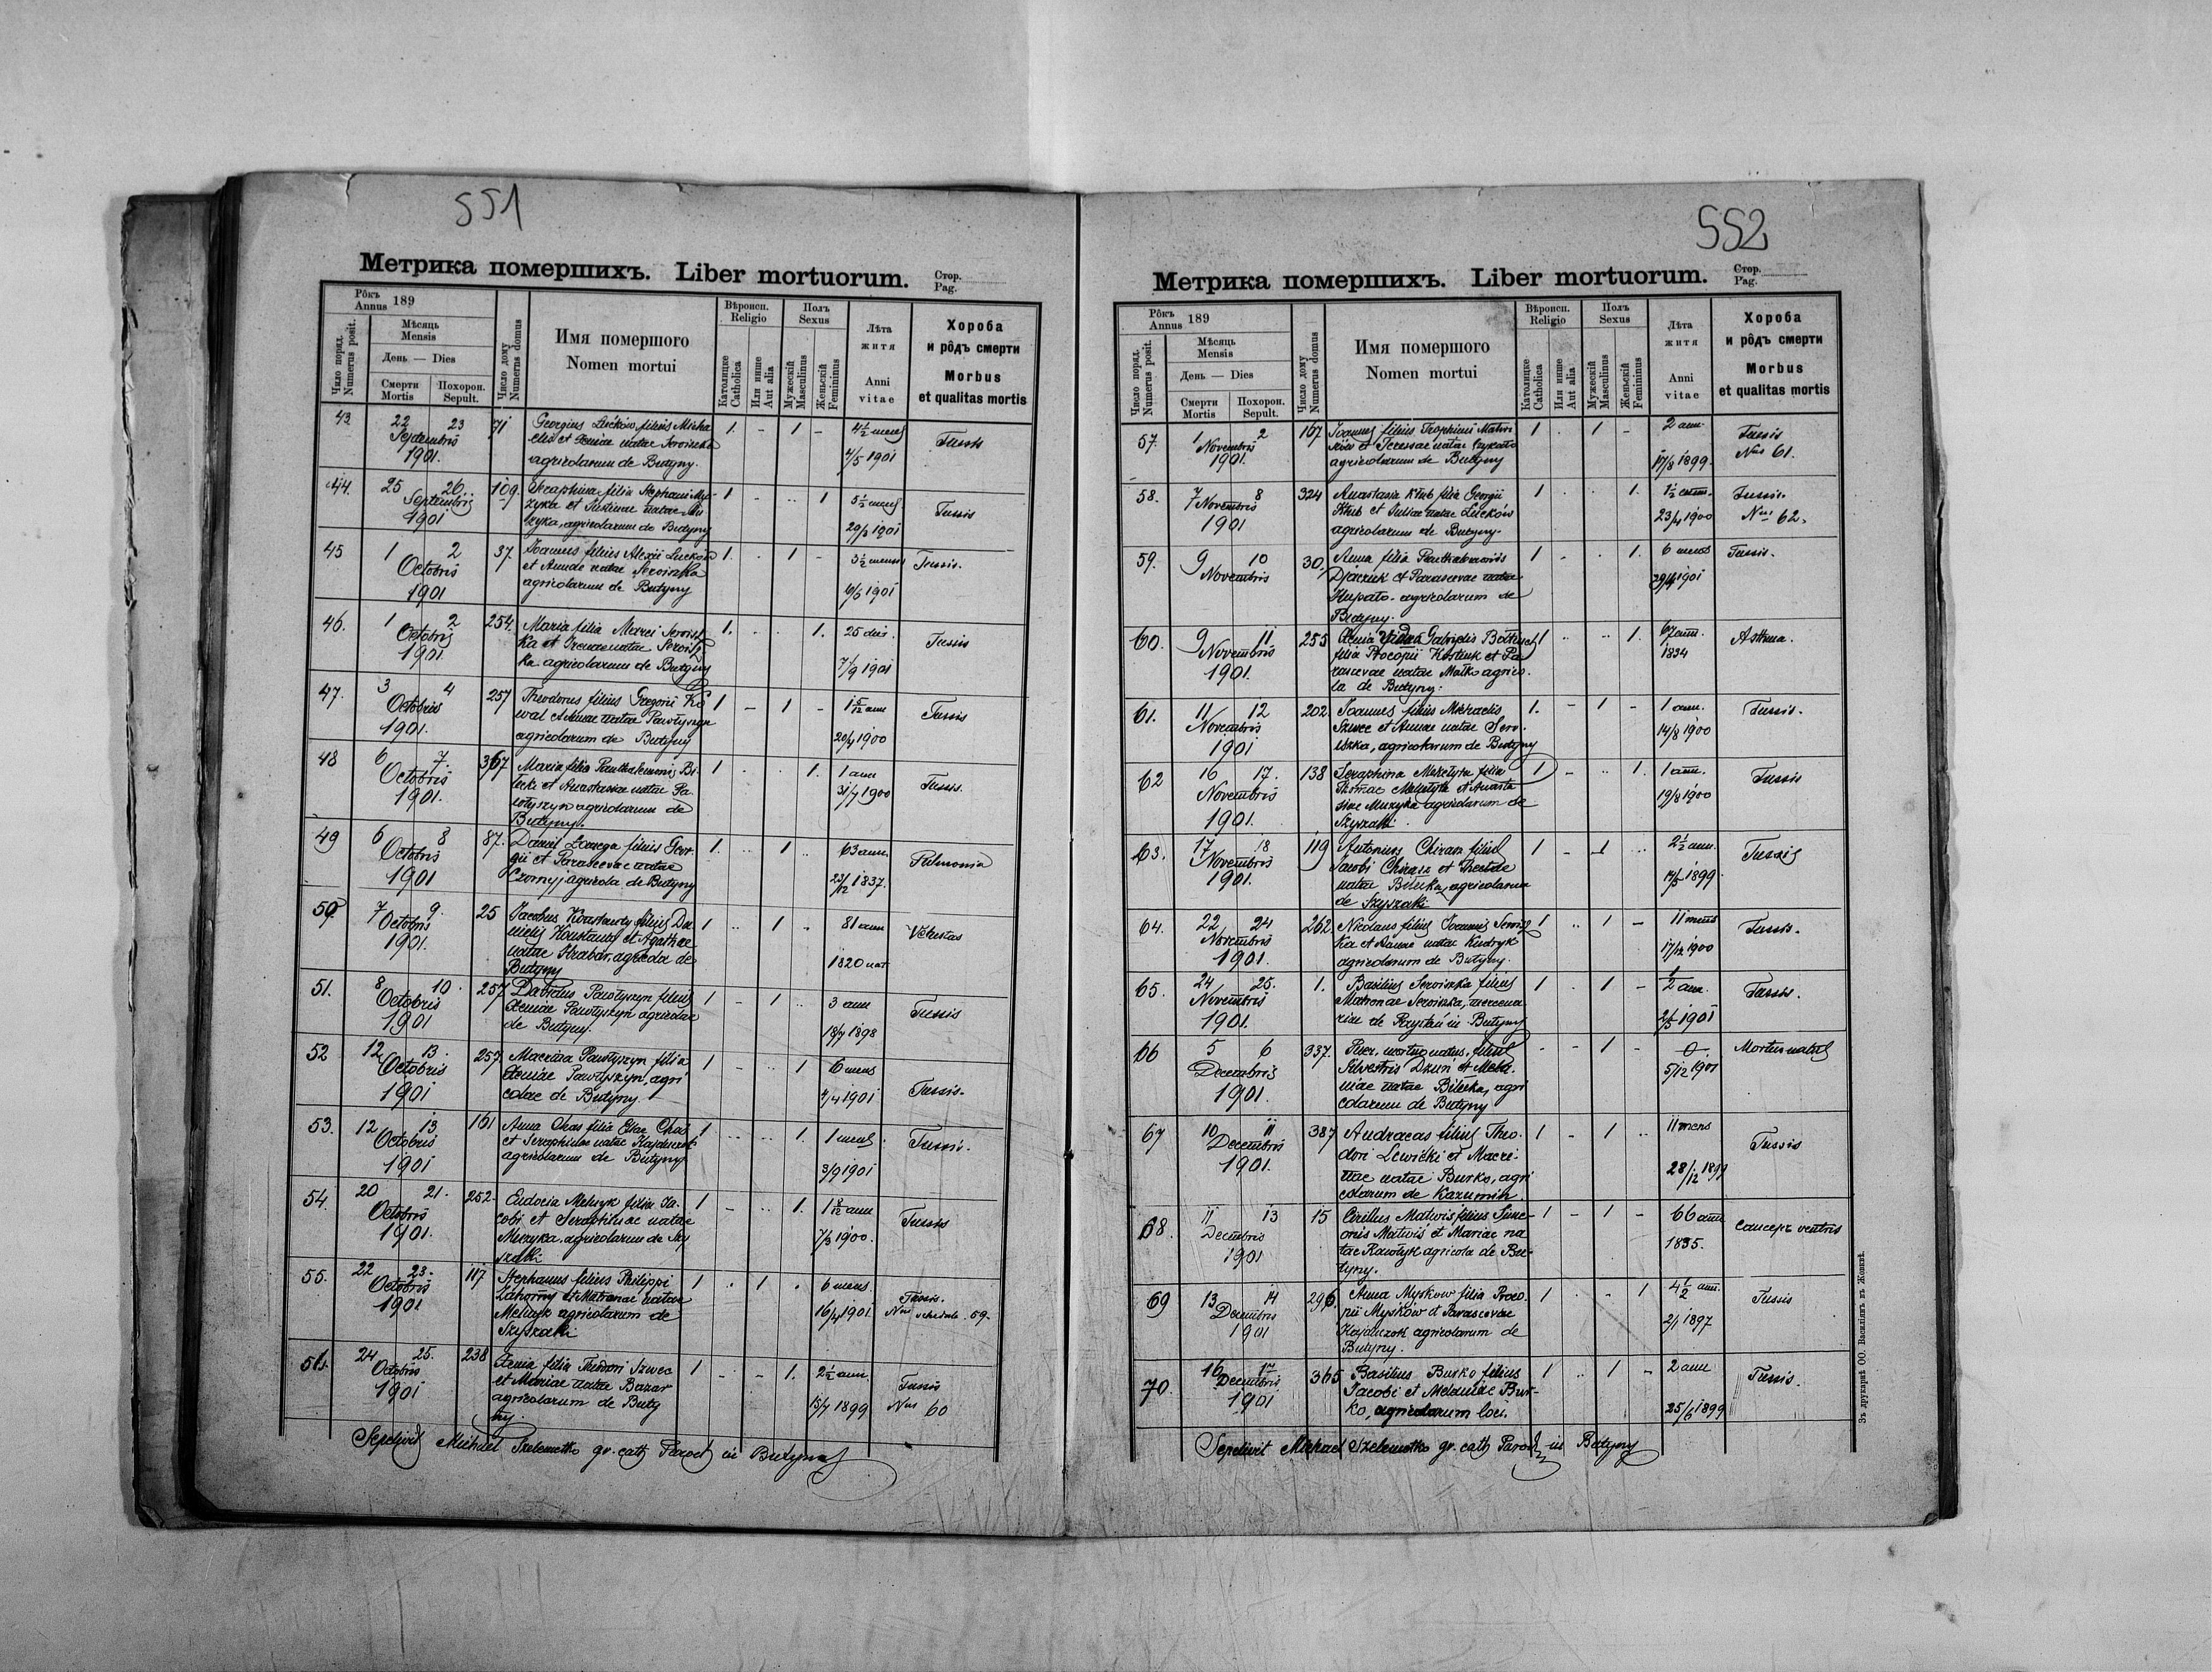 551
Метрика помершихъ. Liber mortuorum. Стор. Pag.
Рôкъ Annus 189
Чило поряд. Numerus posit.
Мѣсяць Mensis
День — Dies
Смерти Mortis
Похорон. Sepult.
Число дому Numerus domus
Имя помершого
Nomen mortui
Вѣроисп. Religio
Католицке Catholica
Или инше Aut alia
Полъ Sexus
Мужескій Masculinus
Женьскій Femininus
Лѣта житя
Anni vitae
Хороба
и рôдъ смерти
Morbus
et qualitas mortis
43. 22 23 Septembris 1901. 71 Georgius Lućków filius Micha
elis et Xeniae natae Seroiszka
agricolarum de Butyny. 1. - 1 - 4 1/2 mens 4/5 1901 Tussis
44. 25 26 Septembris 1901 109. Seraphina filia Stephani Mu-
zyka et natae Mu
zyka, agricolarum de Butyny 1 - .. 1 5 1/2 mens 1901 Tussis
45 1 2 Octobris 1901 37. Joannes filius Alexii Luckow
et Annae natae Seroiszka
agricolarum de Butyny 1. . 1 - 3 1/2 mensis 1901 Tussis.
46. 1 2 Octobris 1901. 254. Maria filia Seroisz
ka et Irenae natae Seroisz
ka agricolarum de Butyny 1. - .. 1. 25 dies. 7/9 1901 Tussis
47. 3 4 Octobris 1901. 257 Theodorus filius Gregorii Ko
wal et natae Pawłyszyn
agricolarum de Butyny 1 - 1 - 1 5/12 ann 20/4 1900 Tussis
48 6 7. Octobris 1901. 367 Maria filia Panthalemonis Bi-
lecki et Anastasiae natae Pa
włyszyn agricolarum de
Butyny. 1 . . 1. 1 ann 31/7 1900 Tussis.
49 6 8 Octobris 1901 87. Daniel filius Geor-
gii et Parascevae natae
Czornyj agricola de Butyny 1. .. 1 .. 63 ann. 23/12 1837. Pulmonia
50 7 9. Octobris 1901. 25 Jacobus filius Da
nielis et Agathae
natae Hrabar, agricola de
Butyny 1 .. 1 .. 81 ann 1820 nat Vetustas
51. 8 10. Octobris 1901 257 Davidus Pawłyszyn filius
Xeniae Pawłyszyn agricolae
de Butyny. 1 - 1 .. 3 ann 18/7 1898 Tussis
52 12 13. Octobris 1901 257. Macrina Pawłyszyn filia
Xeniae Pawłyszyn, agri
colae de Butyny. 1 - .. 1 6 mens 4/4 1901 Tussis.
53. 12 13 Octobris 1901 161 Anna Chas filia Eliae Chas
et Seraphinae natae
agricolarum de Butyny 1 .. .. 1. 1 mens. 3/9 1901 Tussis.
54. 20 21. Octobris 1901. 252. Eudocia Melnyk filia Ja
cobi et Seraphinae natae
Muzyka, agricolarum de Szy
szaki 1 - .. 1. 1 8/12 ann 7/3 1900. Tussis
55. 22 23. Octobris 1901 117 Stephanus filius Philippi
et Matronae natae
Melnyk agricolarum de
Szyszaki 1 . 1 . 6 mens 16/4 1901 Tussis. Nrus schedule 59.
56. 24 25. Octobris 1901 238 Xenia filia Theodori Szwec
et Mariae natae
agricolarum de Buty
ny. 1 - - 1. 2 1/2 ann. 15/7 1899 Tussis Nrus 60
Sepelivit Michael Szelemetko gr. cath Paroch in Butyny
552
Метрика помершихъ. Liber mortuorum. Стор. Pag.
Рôкъ Annus 189
Число поряд. Numerus posit.
Мѣсяць Mensis
День — Dies
Смерти Mortis
Похорон. Sepult.
Число дому Numerus domus
Имя помершого
Nomen mortui
Вѣроисп. Religio
Католицке Catholica
Или инше Aut alia
Полъ Sexus
Мужескій Masculinus
Женьскій Femininus
Лѣта житя
Anni vitae
Хороба
и рôдъ смерти
Morbus
et qualitas mortis
57. 1 2 Novembris 1901. 167 Joannes filius Trophimi
et Teressae natae
agricolarum de Butyny 1 . 1 - 2 ann. 17/8 1899. Tussis Nrus 61.
58. 7 8 Novembris 1901 324 Anastasia filia Georgii
et Juliae natae Luckow
agricolarum de Butyny. 1 . . 1. 1 1/2 ann. 23/4 1900 Tussis. Nrus 62.
59. 9 10 Novembris 30. Anna filia Panthalemonis
Djaczuk et Parascevae natae
agricolarum de
Butyny. 1 - . 1. 6 mens 1901 Tussis.
60. 9 11 Novembris 1901. 255 Xenia vidua Gabrielis
filia Procopii Kostiuk et Pa
rascevae natae agrico.
la de Butyny. 1 .. .. 1. 67 ann. 1834 Asthma.
61. 11 12 Novembris 1901 202 Joannes filius Michaelis
Szwec et Annae natae Sero-
iszka, agricolarum de Butyny 1. - 1 - 1 ann. 14/8 1900 Tussis.
62 16 17. Novembris 1901. 138 Seraphina filia
Thomae et Anasta
siae Muzyka agricolarum de
Szyszaki. 1 - .. 1. 1 ann. 19/8 1900 Tussis
63. 17 18 Novembris 1901. 119 Antonius filius
Jacobi et Theclae
natae Bilecka, agricolarum
de Szyszaki 1 - 1 .. 2 1/2 ann. 1899. Tussis
64. 22 24 Novembris 1901. 262 Nicolaus filius Joannis Seroisz
ka et Annae natae Kudryk
agricolarum de Butyny. 1 .. 1 - 11 mens 17/12 1900 Tussis.
65. 24 25. Novembris 1901. 1. Basilius Seroiszka filius
Matronae Seroiszka, mercena
riae de in Butyny 1 . 1 - 1/2 ann. 2/5 1901 Tussis.
66 5 6 Decembris 1901. 337. Puer, mortuo natus, filius
Silvestris Dzun et Mela.
niae natae Bilecka, agri
colarum de Butyny - - 1 - 0. 5/12 1901 Mortuo natus
67 10 11 Decembris 1901. 387 Andraeas filius Theo-
dori Lewicki et Macri-
nae natae Burko, agri
colarum de Kazumin 1 - 1 .. 11 mens 28/12 Tussis
68. 11 13 Decembris 1901 15 Cirillus Matwis filius Sime-
onis Matwis et Mariae na
tae agricola de Bu-
tyny. 1 - 1 - 66 ann 1835. Cancer ventris
69 13 14 Decembris 1901 296. Anna Myskow filia Proco-
pii Myskow et Parascevae
agricolarum de
Butyny. 1 . - 1 4 1/2 ann. 2/1 1897 Tussis
70. 16 17 Decembris 1901 365 Basilius Burko filius
Jacobi et Melaniae Bur-
ko, agricolarum loci. 1 .. 1 - 2 ann 25/6 1899 Tussis.
Sepelivit Michael Szelemetko gr. cath Paroch in Butyny
Зъ друкарнѣ ОО. Василіянъ въ Жовквѣ.